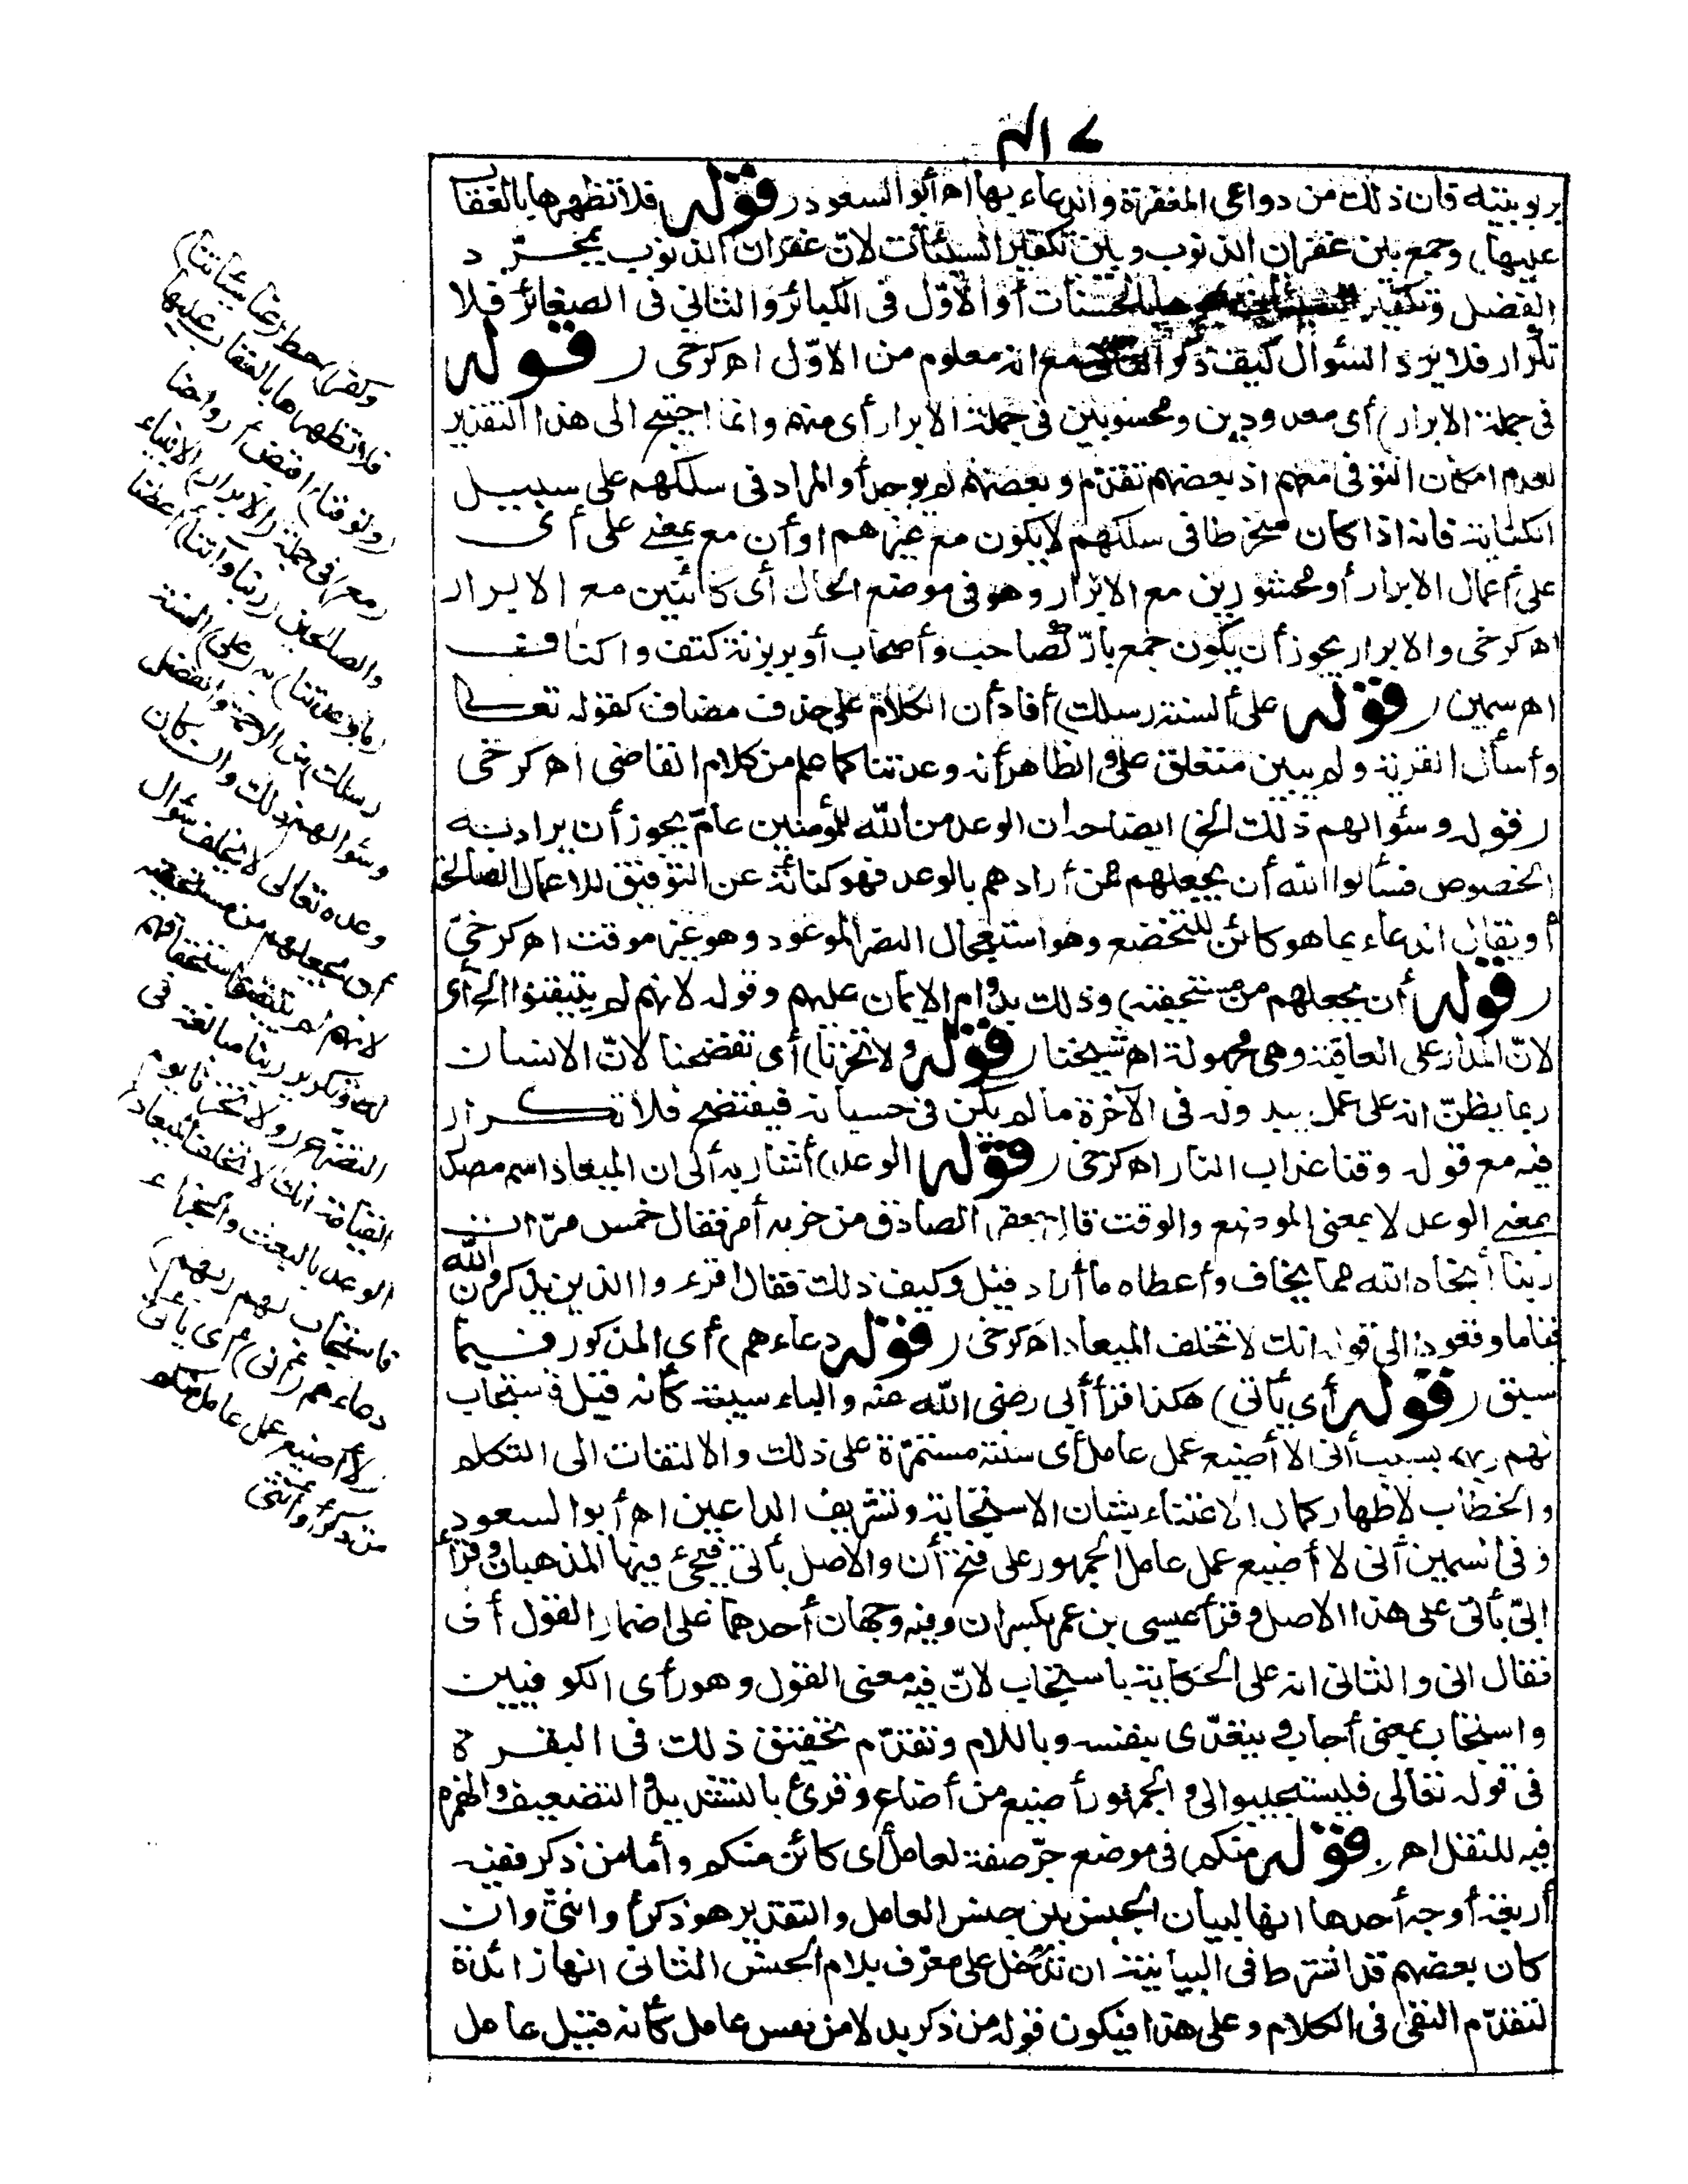 بربوبيته فان ذلك من دواعى المغفرة والدعاء بها اه أبوالسعود (قوله فلا تظهرها بالعقاب
عليها) وجمع بين غفران الذنوب وبين تكفير السيئات لانّ غفران الذنوب بمجرّد
الفضل وتكفير الحسنات أو الأوّل فى الكبائر والثانى فى الصغائر فلا
تكرار فلا يرد السؤال كيف ذكر مع انه معلوم من الاوّل اهكرخى (قوله
فى جملة الابرار) أى معدودين ومحسوبين فى جملة الابرار أى منهم وانما احتيج الى هذا التقدير
لعدم امكان التوفى معهم اذ بعضهم تقدّم وبعضهم لم يوجد أو المراد فى سلكهم على سبيل
الكناية فانه اذا كان منخرطا فى سلكهم لا يكون مع غيرهم او أن مع بمعنى على أى
على أعمال الابرار أو محشورين مع الابرار وهو فى موضع الحال أى كائنين مع الابرار
اهكرخى والابرار يجوز أن يكون جمع بارّ كصاحب وأصحاب أو بر بزنة كتف واكتاف
اه سمين (قوله على ألسنة رسلك) أفاد أن الكلام على حذف مضاف كقوله تعالى
وأسأل القرية ولم يبين متعلق على والظاهر أنه وعدتنا كما علم من كلام القاضى اه كرخى
(قوله وسؤالهم ذلك الخ) ايضاحه ان الوعد من الله للمؤمنين عامّ يجوز أن يراد به
الخصوص فسألوا الله أن يجعلهم ممن أرادهم بالوعد فهو كناية عن التوفيق للاعمال الصالحة
أو يقال الدعاء بما هو كائن للتخضع وهو استعجال النصر الموعود وهو غير موقت اهكرخىّ
(قوله أن يجعلهم من مستحقيه) وذلك بدوام الايمان عليهم وقوله لانهم لم يتيقنوا الخ أى
لانّ المدار على العاقبة وهى مجهولة اه شيخنا (قوله ولا تخزنا) أى تفضحنا لانّ الانسان
ربما يظنّ انه على عمل يبدو له فى الآخرة ما لم يكن فى حسبانه فيفتضح فلا تكرار
فيه مع قوله وقنا عذاب النار اهكرخى (قوله الوعد) أشار به الى ان الميعاد اسم مصدر
بمعنى الوعد لا بمعنى الموضع والوقت قال جعفر الصادق من حزبه أمر فقال خمس مرّات
ربنا أنجاه الله مما يخاف وأعطاه ما أراد قيل وكيف ذلك فقال اقرءوا الذين يذكرون الله
قياما وقعودا الى قوله انك لا تخلف الميعاد اهكرخى (قوله دعاءهم) أى المذكور فيما
سبق (قوله أى بأنى) هكذا قرأ أبى رضى الله عنه والباء سببية كأنه قيل فاستجاب
لهم ربهم بسبب أنى لا أضيع عمل عامل أى سنته مستمرّة على ذلك والالتفات الى التكلم
والخطاب لاظهار كمال الاعتناء بشأن الاستجابة وتشريف الداعين اه أبو السعود
وفى السمين أنى لا أضيع عمل عامل الجمهور على فتح أن والاصل بأنى فيجئ فيها المذهبان وقرأ
ابىّ بأنى على هذا الاصل وقرأ عيسى بن عمر بكسر ان وفيه وجهان أحدهما على اضمار القول أى
فقال انى والثانى انه على الحكاية باستجاب لانّ فيه معنى القول وهو رأى الكوفيين
واستجاب بمعنى أجاب ويتعدّى بنفسه وباللام وتقدّم تحقيق ذلك فى البقرة
فى قوله تعالى فليستجيبوا لى والجمهور أضيع من أضاع وقرئ بالتشديد والتضعيف والهمزة
فيه للنقل اه (قوله منكم) فى موضع جرّ صفة لعامل أى كائن منكم وأما من ذكر ففيه
أربعة أوجه أحدها انها لبيان الجنس بين جنس العامل والتقدير هو ذكر أو انثى وان
كان بعضهم قد اشترط فى البيانية ان تدخل على معرف بلام الجنس الثانى انها زائدة
لتقدّم النفى فى الكلام وعلى هذا فيكون قوله من ذكر بدلا من نفس عامل كأنه قيل عامل
وكفر) حط (عنا سيئاتنا)
فلا تظهرها بالعقاب عليها
(وتوفنا) اقبض أرواحنا
(مع) فى جملة (الابرار) الانبياء
والصالحين (ربنا وآتنا) أعطنا
(ما وعدتنا) به (على) ألسنة
(رسلك) من الرحمة والفضل
وسؤالهم ذلك وان كان
وعده تعالى لا يخلف سؤال
أن يجعلهم من مستحقيه
لانهم لم يتيقنوا استحقاقهم
له وتكرير ربنا مبالغة فى
التضرّع (ولا تخزنا يوم
القيامة انك لا تخلف الميعاد)
الوعد بالبعث والجزاء
(فاستجاب لهم ربهم)
دعاءهم (أنى) أى بأنى
(لا أضيع عمل عامل منكم
من ذكر أو أنثى